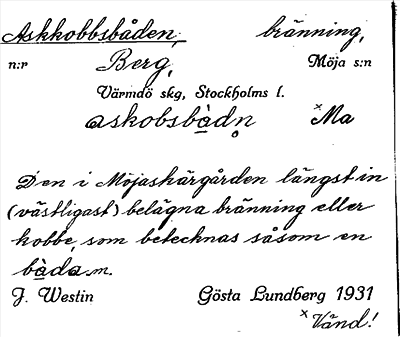 Askkobbsbåden, bränning,
n:r Berg, Möja s:n
Värmdö skg, Stockholms l.
askobsbàdn̥ ×Ma
Den i Möjaskärgården längst in
(västligast) belägna bränning eller
kobbe, som betecknas såsom en
bàda m.
J. Westin Gösta Lundberg 1931
×Vänd!